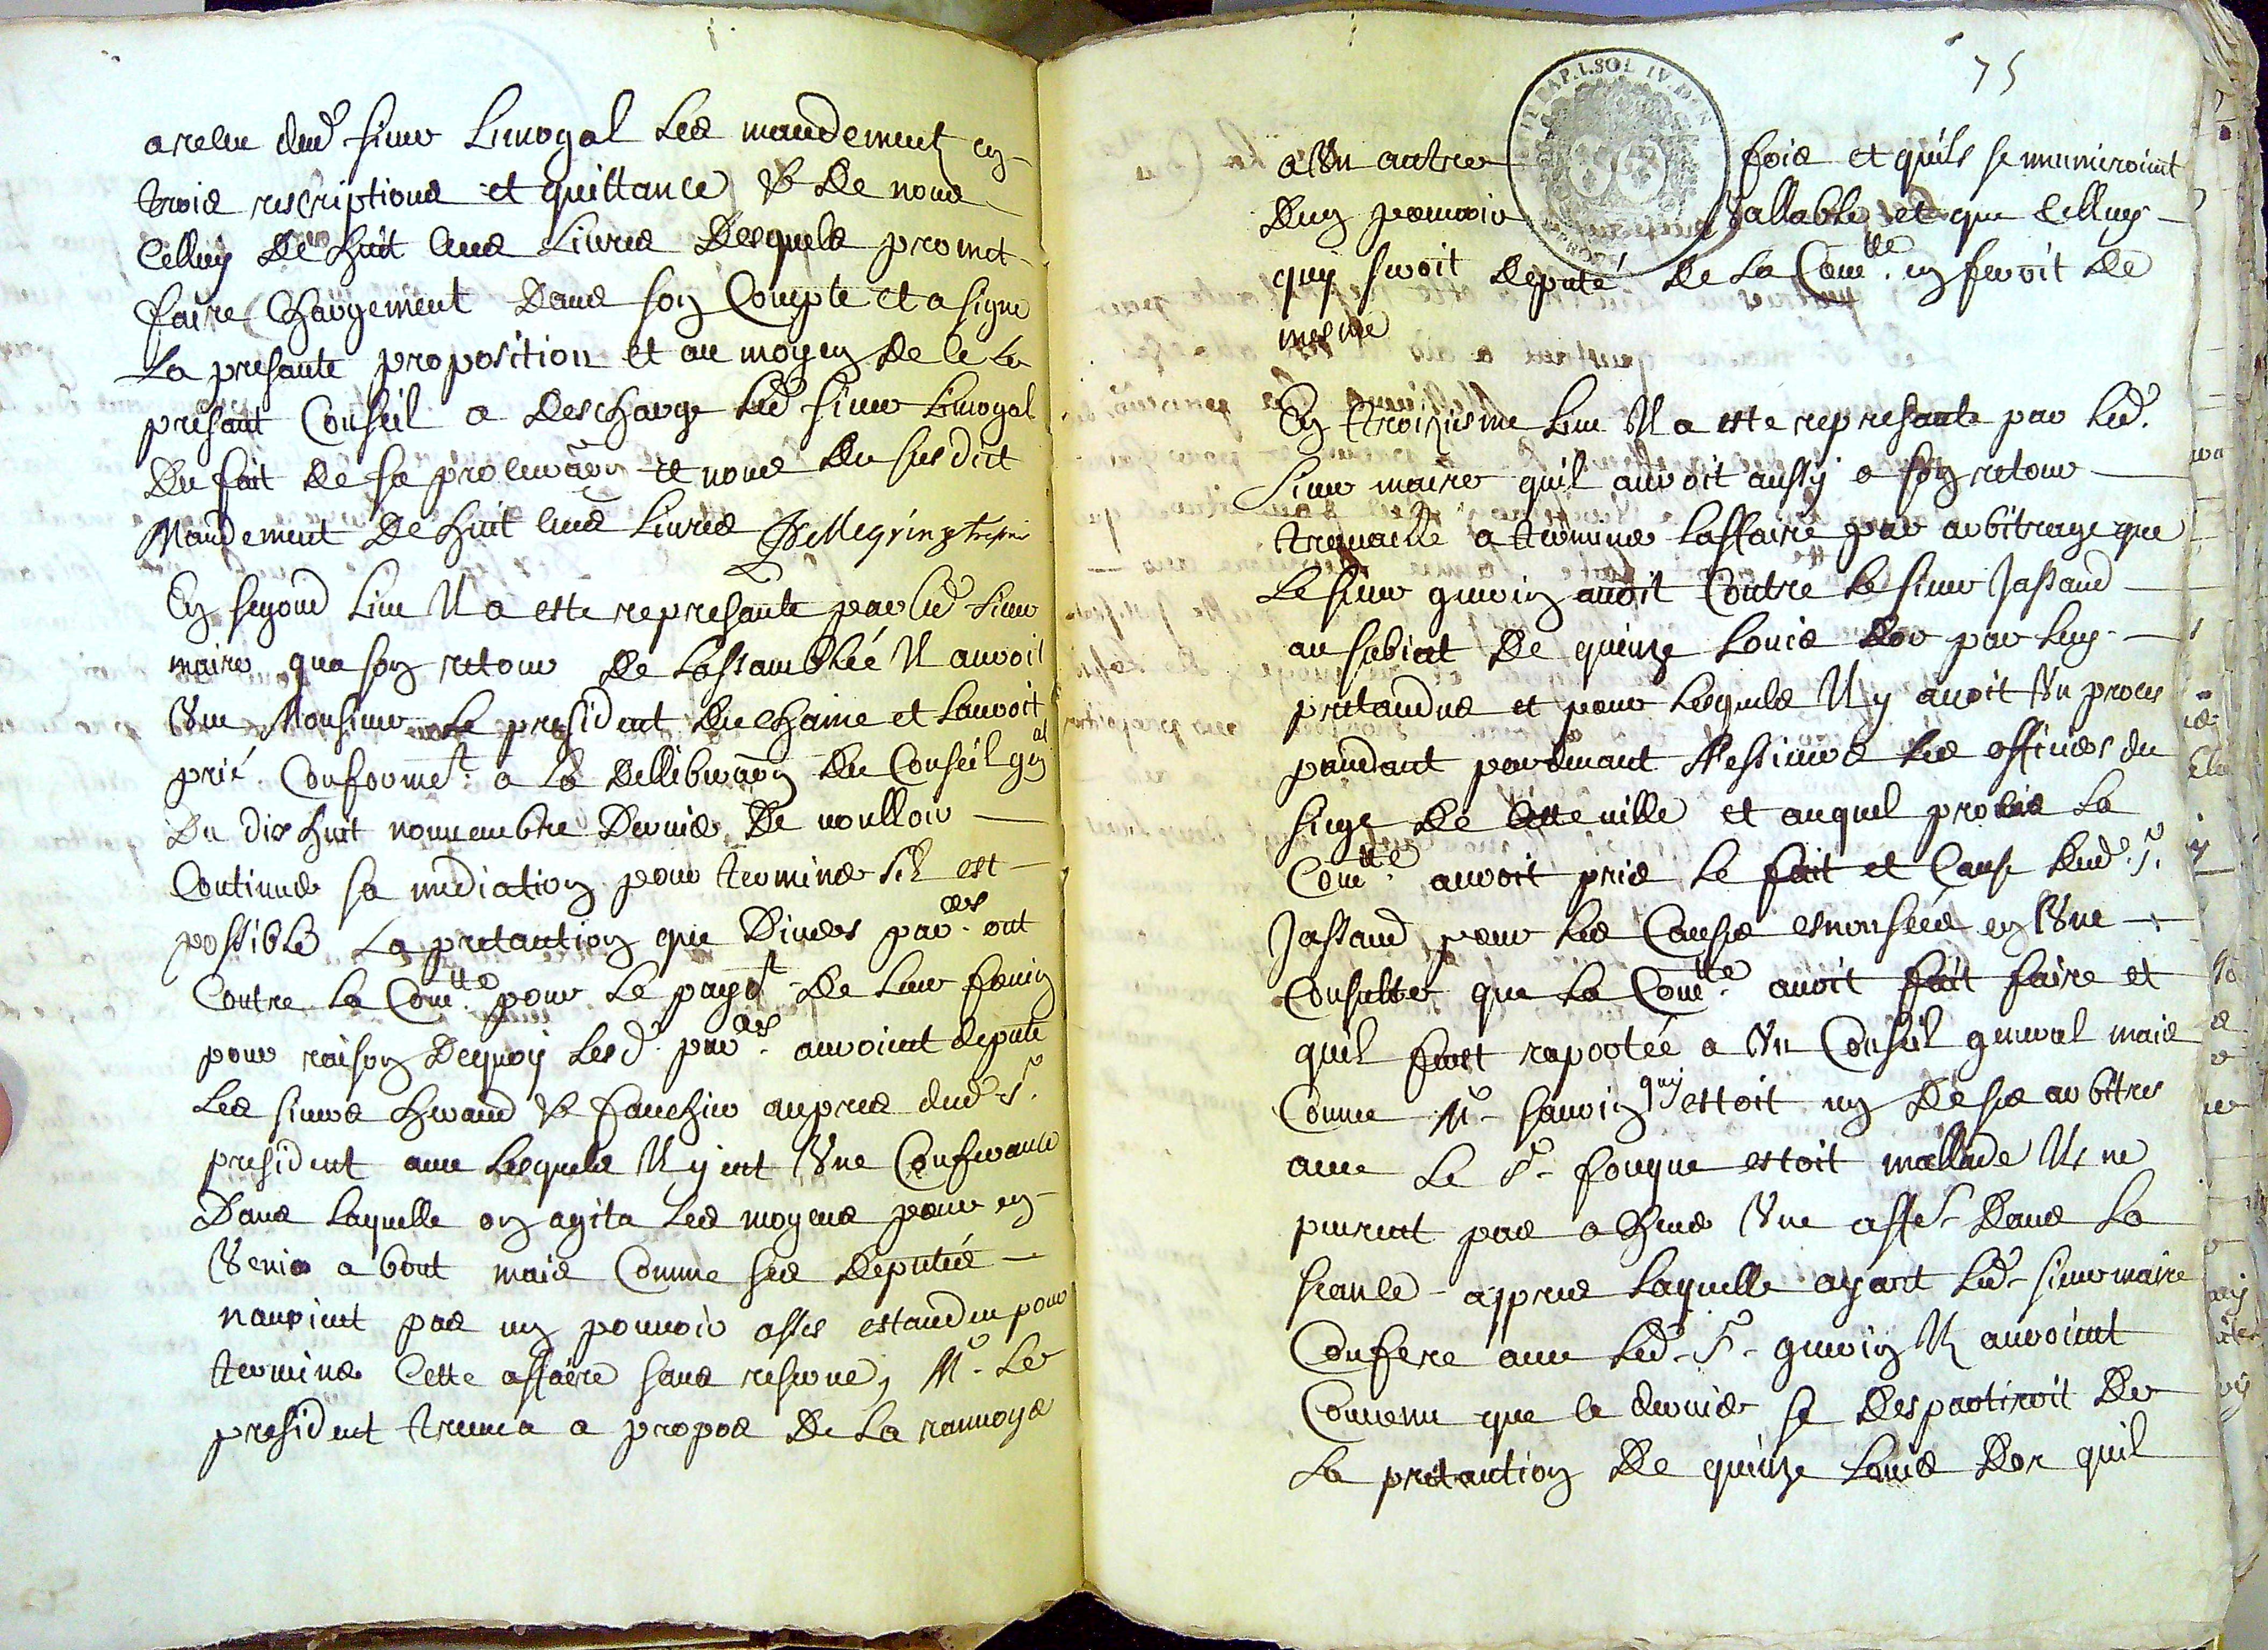 a reseu dud sieur Simogal les mandement en
trois rescriptions et quittance & de nous
celluy de huit cens livres desquels promet
faire chargement dans son compte et a signe
la presante proposition et au moyen de ce le
presant conseil a descharge led sieur Simogal
du fait de sa procuraon et nous du susdict
mandement de huit cens livres Pellegrin
En segond lieu Il a este represante par led sieur
maire qua son retour de lassamblée Il auroit
Veu Monsieur le president du chaine et lauroit
prié conforme.t a la delliberaon du conseil gnal
du dix huit nouuembre dernier de voulloir
continuer sa mediation pour terminer sil est
possible la pretantion que diuers par.ers ont
contre la com.tte pour le paye.t de leur foin
pour raison dequoy lesd. par.ers auroint depute
les sieurs heraud & fauchier aupres dud s.r
president auec lesquels Il y eut Vne conferance
dans laquelle on agita les moyens pour en
Venir a bout mais comme ses deputés
nauoint pas un pouuoir asses estandeu pour
terminer cette affaire sans reserue, M.r le
president treuua a propos de la ranuoyer
75
a Vn autre fois et quils se muniroint
dun pouuoir Vallable et que celluy
quy seroit deputé de la com.tte en feroit de
mesme
En troisiesme lieu Il a este represante par led.
sieur maire quil auroit aussy a son retour
treuuaillé a terminer laffaire par arbitrage que
le sieur guerin auoit contre le sieur Jassaud
au subiet de quinze louis dor par luy
pretandus et pour lesquels Il y auoit Vn proces
pandant pardeuant Messieurs les officiers du
siege de cette ville et auquel proces la
com.tte auroit pris le fait et cause dud. s.r
Jassaud pour les causes esnonsées en Vne
consulte que la com.tte auoit fait faire et
quil feust raportée a Vn conseil general mais
comme M.r sauuin quy estoit un de ses arbitres
auec le s.r fouque estoit mallade Ils ne
peurent pas acheuer Vne aff.e dans la
seance appres laquelle ayant led. sieur maire
confere auec led. s.r guerin Ils auroint
conuenu que ce dernier se despartiroit de
la pretantion de quinze louis dor quil